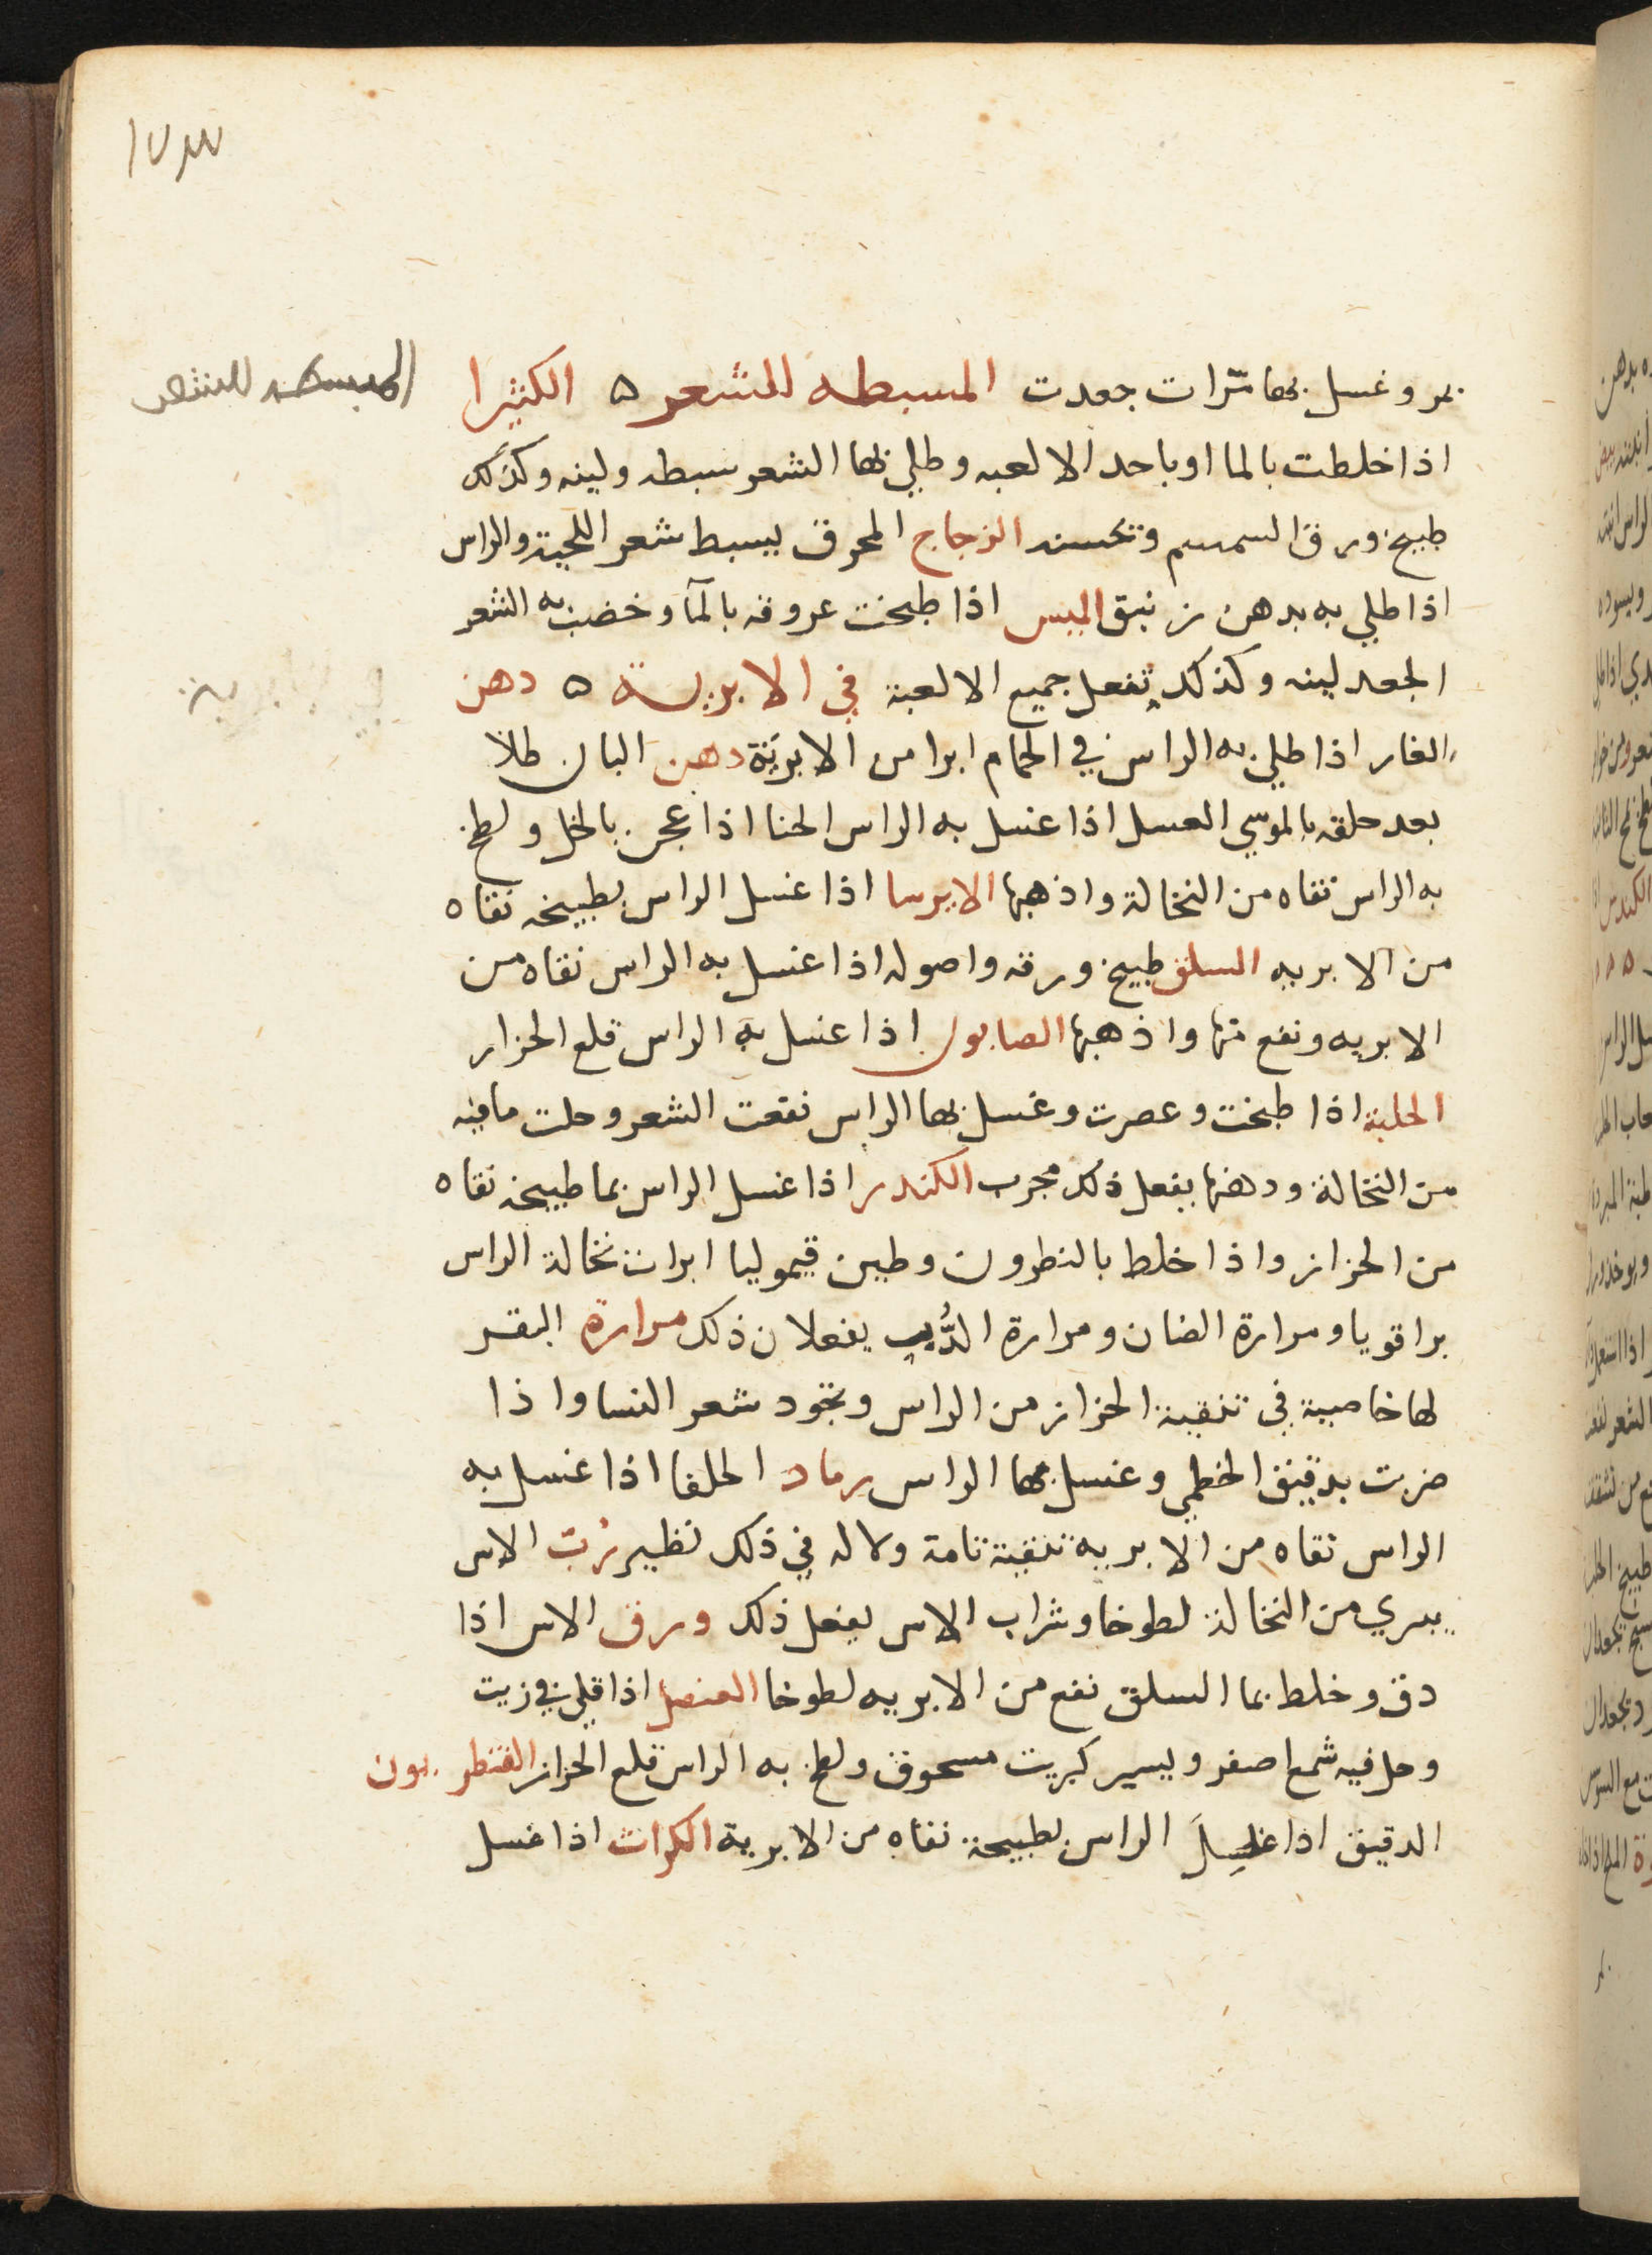 المبسطه للشعر
بمر وغسل بها مرات جعدت المسبطه للشعر ه الكثيرا
اذا خلطت بالما او باحد الالعبه وطلي بها الشعر سبطه ولينه وكذلك
طبيخ ورق السمسم وتحسنه الزجاج المحرق يسبط شعر اللحية والراس
اذا طلي به بدهن زنبق الميس اذا طبخت عروقه بالمآ وخضب به الشعر
الجعد لينه وكذلك تفعل جميع الالعبة في الابرية ه دهن
الغار اذا طلي به الراس في الحمام ابرا من الابرية دهن البان طلا
بعد حلقه بالموسي العسل اذا غسل به الراس الحنا اذا عجن بالخل ولطخ
به الراس نقاه من النخالة واذهبها الايرسا اذا غسل الراس بطبيخه نقاه
من الابريه السلق طبيخ ورقه واصوله اذا غسل به الراس نقاه من
الابريه ونفع منها واذهبها الصابون اذا غسل به الراس قلع الحزاز
الحلبة اذا طبخت وعصرت وغسل بها الراس نفعت الشعر وحلت ما فيه
من النخالة ودهنها يفعل ذلك مجرب الكندر اذا غسل الراس بما طبيخه نقاه
من الحزاز واذا خلط بالنطرون وطين قيموليا ابرات نخالة الراس
برا قويا ومرارة الضان ومرارة الدُّب يفعلان ذلك مرارة البقر
لها خاصية في تنقية الحزاز من الراس وتجود شعر النسا واذا
ضربت بدقيق الخطمي وغسل بها الراس رماد الحلفا اذا غسل به
الراس نقاه من الابريه تنقية تامة ولا له في ذلك نظير رُبّ الاس
يبري من النخالة لطوخا وشراب الاس يفعل ذلك ورق الاس اذا
دق وخلط بما السلق نفع من الابريه لطوخا العنصل اذا قلي في زيت
وحل فيه شمع اصفر ويسير كبريت مسحوق ولطخ به الراس قلع الحزاز القنطريون
الدقيق اذا غسِلَ الراس بطبيخه نقاه من الابرية الكراث اذا غسل